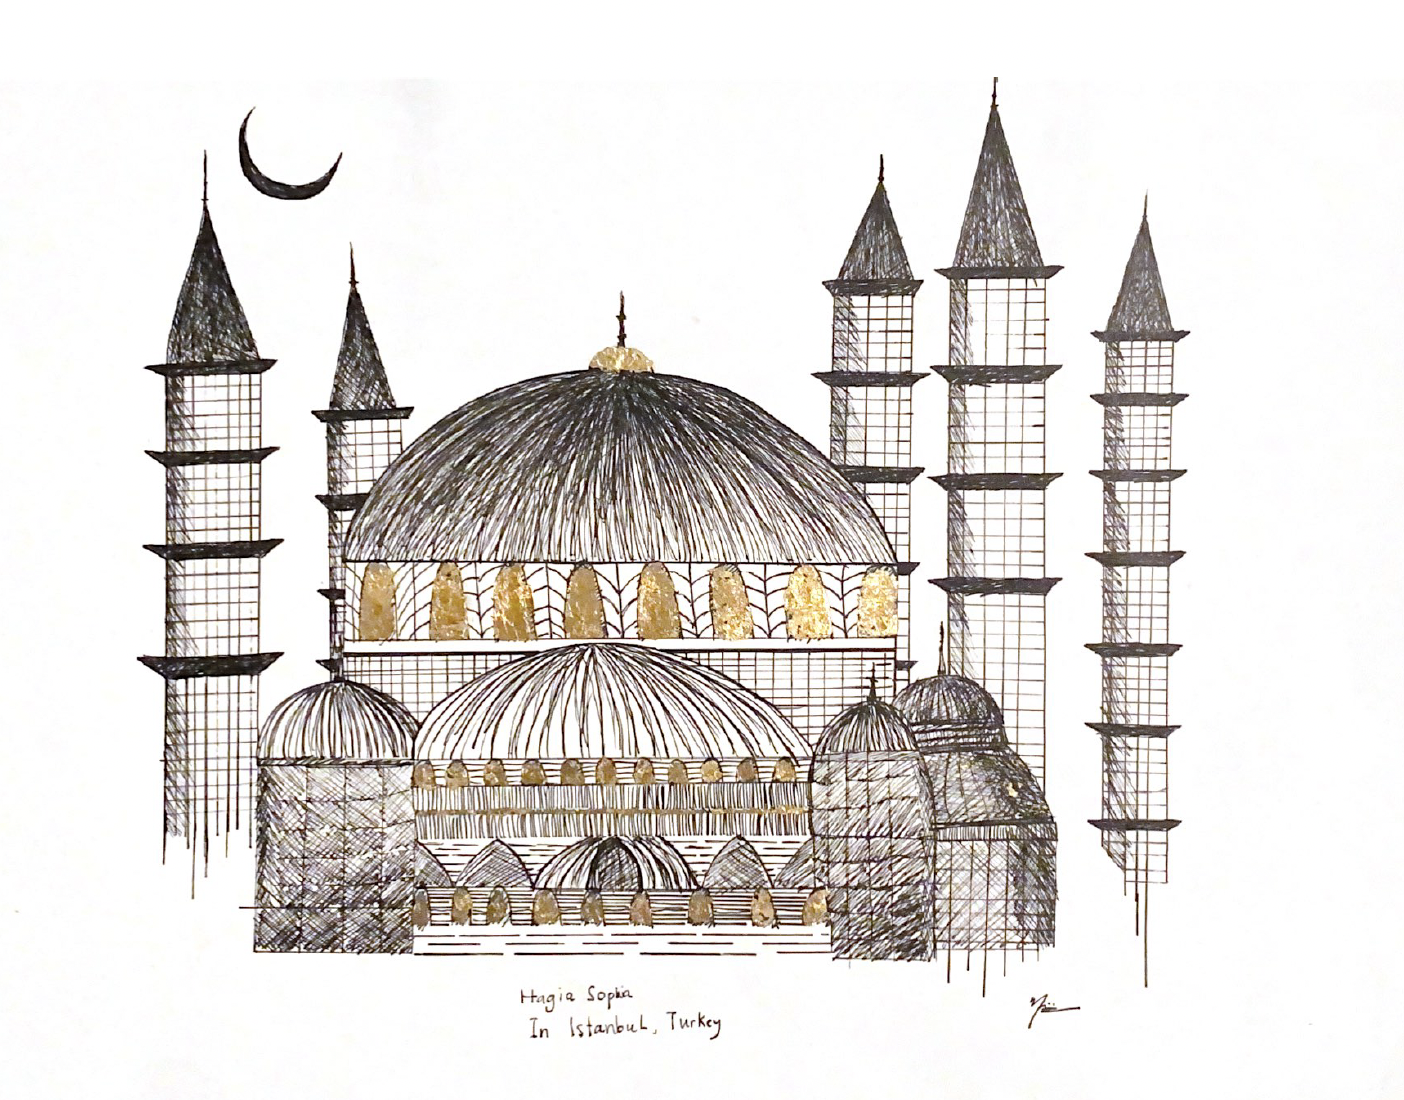 Hagia Sophia
In Istanbul, Turkey